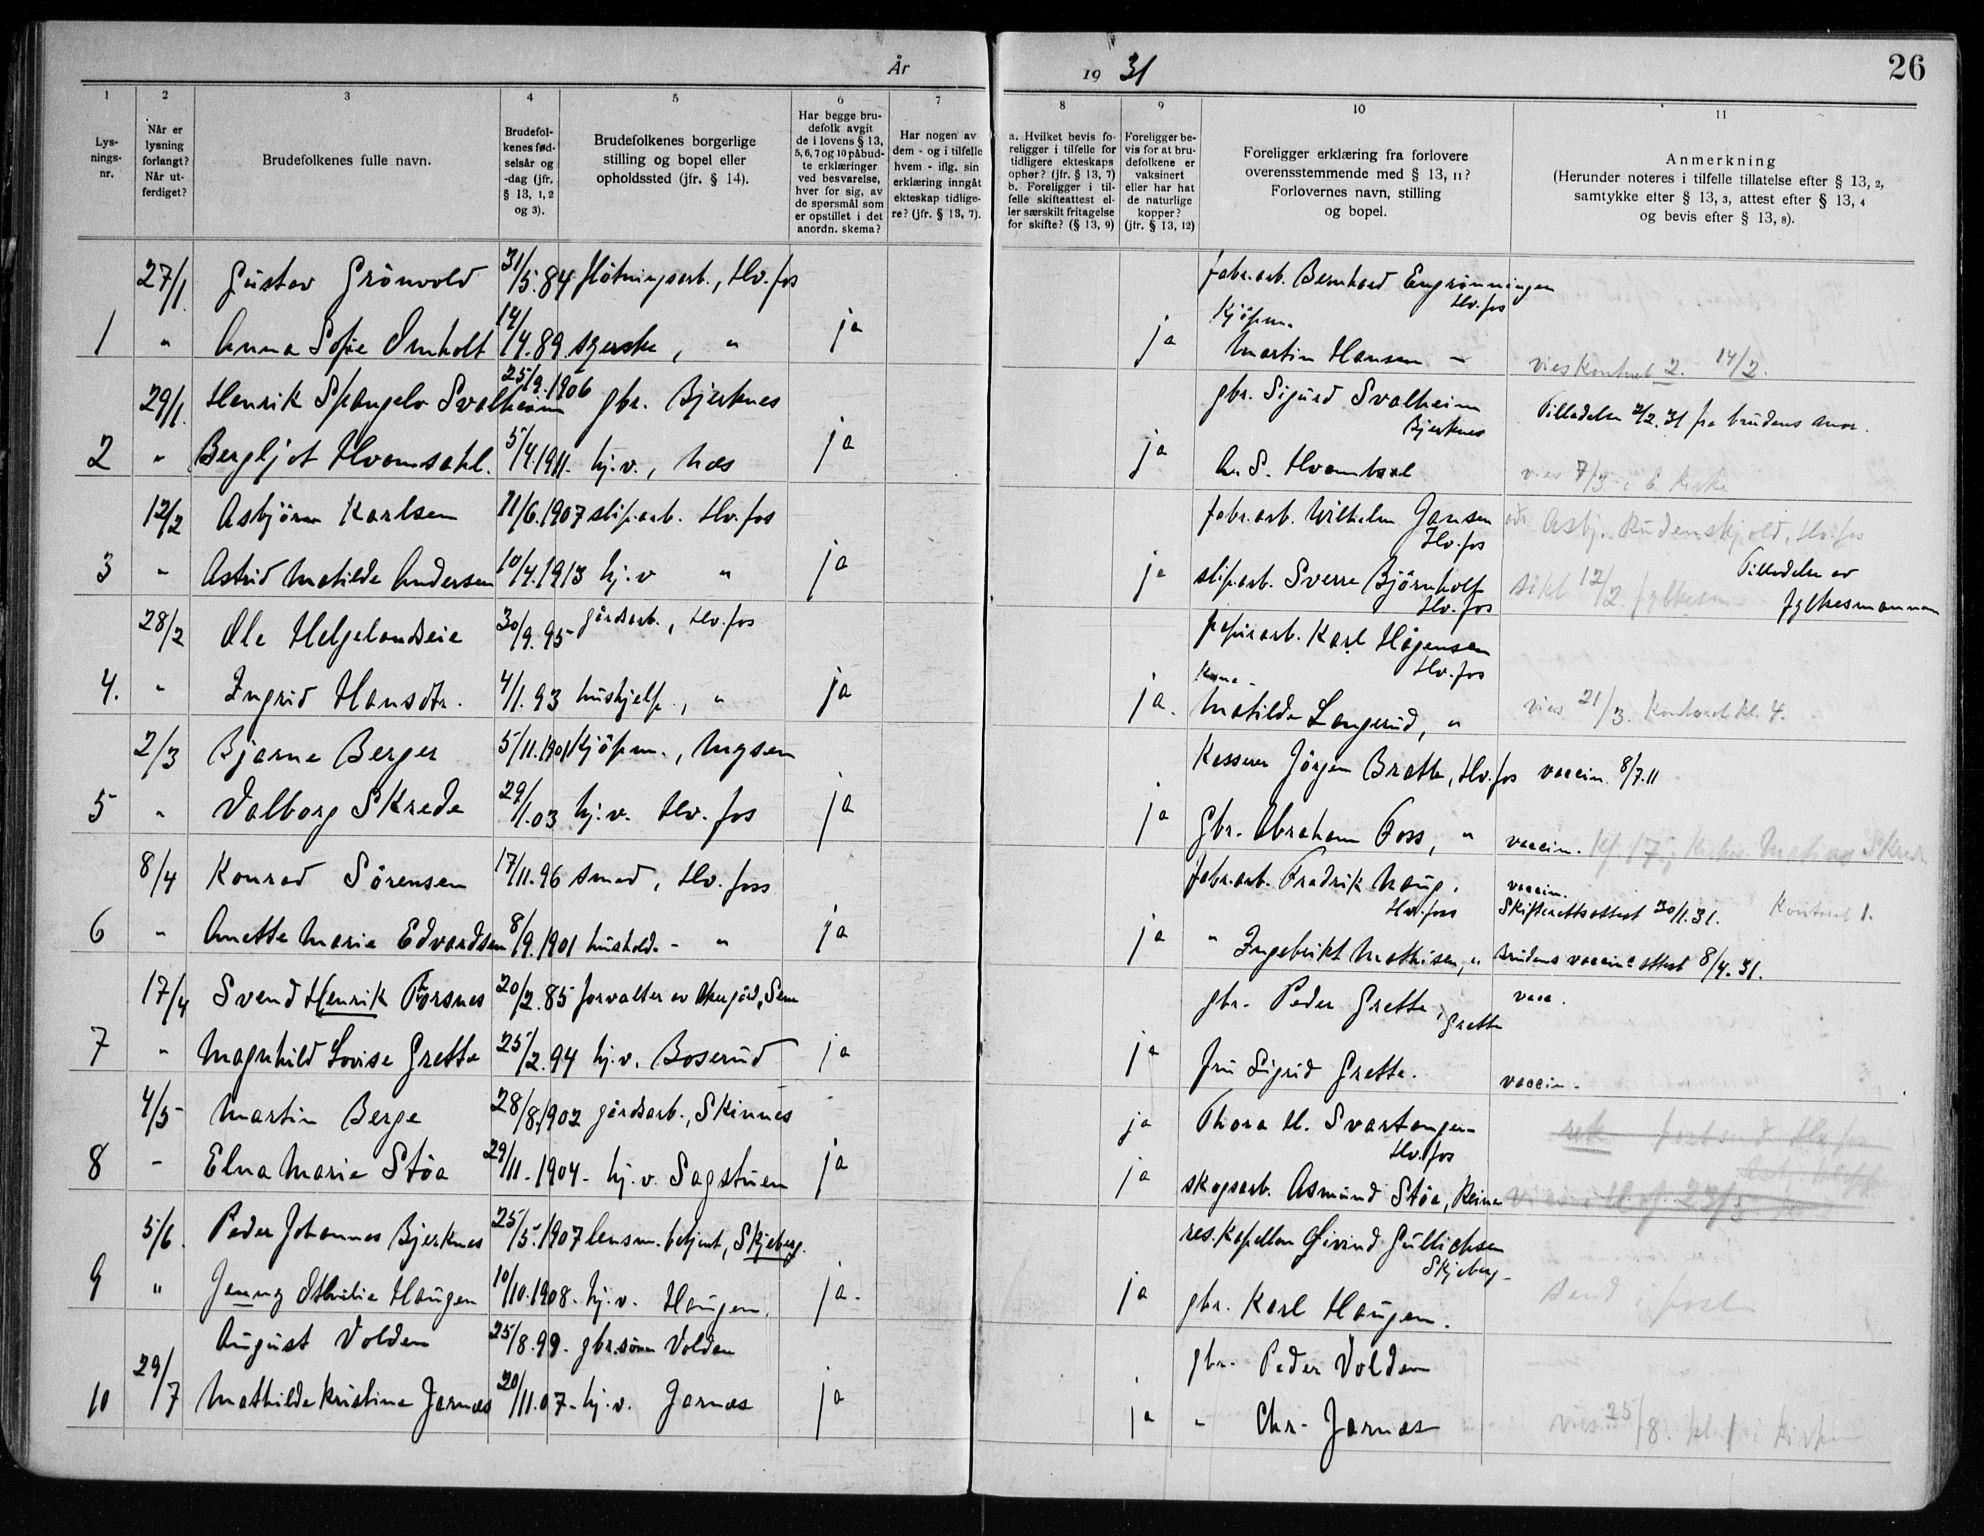 År 1931
26
1 2 3 4 5 6 7 8 9 10 11
Lys-
nings-
nr.
Når er
lysning
forlangt?
Når ut-
ferdiget?
Brudefolkenes fulle navn.
Brudefol-
kenes fød-
selsår og
-dag (jfr.
§ 13, 1, 2
og 3).
Brudefolkenes borgerlige
stilling og bopel eller
opholdssted (jfr. § 14).
Har begge bru-
defolk avgit
de i lovens § 13,
5, 6, 7 og 10 påbud-
te erklæringer
ved besvarelse,
hver for sig, av
de spørsmål som
er opstillet i det
anordn. skema?
Har nogen av
dem - og i tilfelle
hvem - iflg. sin
erklæring inngått
ekteskap tidlige-
re? (jfr. § 13, 7).
a. Hvilket bevis fo-
religger i tilfelle for
tidligere ekteskaps
ophør? (jfr. § 13, 7)
b. Foreligger i til-
felle skifteattest el-
ler særskilt fritagelse
for skifte? (§ 13, 9)
Foreligger be-
vis for at bru-
defolkene er
vaksinert
eller har hat
de naturlige
kopper?
(jfr. § 13, 12)
Foreligger erklæring fra forlovere
overensstemmende med § 13, 11?
Forlovernes navn, stilling
og bopel.
Anmerkning
(Herunder noteres i tilfelle tillatelse efter § 13, 2,
samtykke efter § 13, 3, attest efter § 13, 4
og bevis efter § 13, 8).
27/1. Gustav Grönvold 31/5.84 fløtningsarb., Hv.fos fabr.arb. Bernhard Engrønningen
Hv.fos
Kjöpm.
1 " Anna Sofie Omholt 14/4.89 syerske, " ja ja Martin Hansen - vies Kontoret 2. 14/2.
29/1. Henrik Spangelo Svalheim 25/9.1906 gbr. Bjerknes gbr. Sigurd Svalheim Tilladelse 2/2.31 fra brudens
Bjerknes
2 " Bergljot Hvamsahl. 5/4.1911. hj.v., Næs ja ja A. S. Hvamsahl vies 7/3 i kirke
12/2 Asbjörn Karlsen 11/6.1907 slip.arb. Hv.fos fabr.arb. Wilhelm Jansen adr. Asbj. Rudenskjold, Hv.fos
Hv.fos
3 " Astrid Matilde Andersen 10/4.1913 hj.v " ja ja slip.arb. Sverre Björnholt søkt 12/2 fylkesm. Tilladelse av
Hv.fos fylkesmannen
28/2 Ole Helgelandseie 30/9.95 gårdsarb., Hv.fos papirarb. Karl Hågensen
Hv.fos
Kone -
4. " Ingrid Hansdtr. 4/1.93 hushjelp., " ja ja. Matilde Langerud, " vies 21/3. Kontoret kl. 4.
2/3 Bjarne Berger 5/11.1901 Kjöpm., Mysen Kasserer Jörgen Bratte, Hv.fos vaccin. 8/7.11
5 " Valborg Skrede 29/1.03 hj.v. Hv.fos ja ja Gbr. Abraham Foss, " vaccin.
8/4 Konrad Sörensen 17/11.96 smed, Hv.foss fabr.arb. Fredrik Haug. vaccin.
Hv.foss Skifterettsattest 30/1.31. Kontoret 1.
6 " Anette Marie Edvardsen 8/9.1901 hushold. - " ja ja " Ingebrikt Mathisen, " Brudens vaccine attest 8/4.31.
17/4 Svend Henrik Thorsnes 20/2.85 forvalter av Akergård, Sem gbr. Peder Grette, Grette vacc.
7 " Magnhild Lovise Grette 25/2.94 hj.v. Boserud ja ja fru Sigrid Grette. vaccin.
4/5 Martin Berge 28/8.1902 gårdsarb., Skinnes ja Thora H. Svartangen
Hv.fos
8 - Elna Marie Støa 29/11-1904- hj.v. Sagstuen ja ja skogsarb. Asmund Støa, Reina
5/6. Peder Johannes Bjerknes 25/5.1907 lensm. betjent, Skjeberg. res. Kapellan Øivind Gullichsen
Skjeberg
9 " Jenny Othilie Haugen 10/10.1908. hj.v. Haugen. ja. ja gbr. Karl Haugen. send i post
August Volden 25/8.99. gbr.sönn Volden gbr. Peder Volden
10 29/7 Mathilde Kristine Jarnæs 20/11.07- hj.v. Jarnæs ja ja " Chr. Jarnæs vies 25/8. kl. 1 i kirken